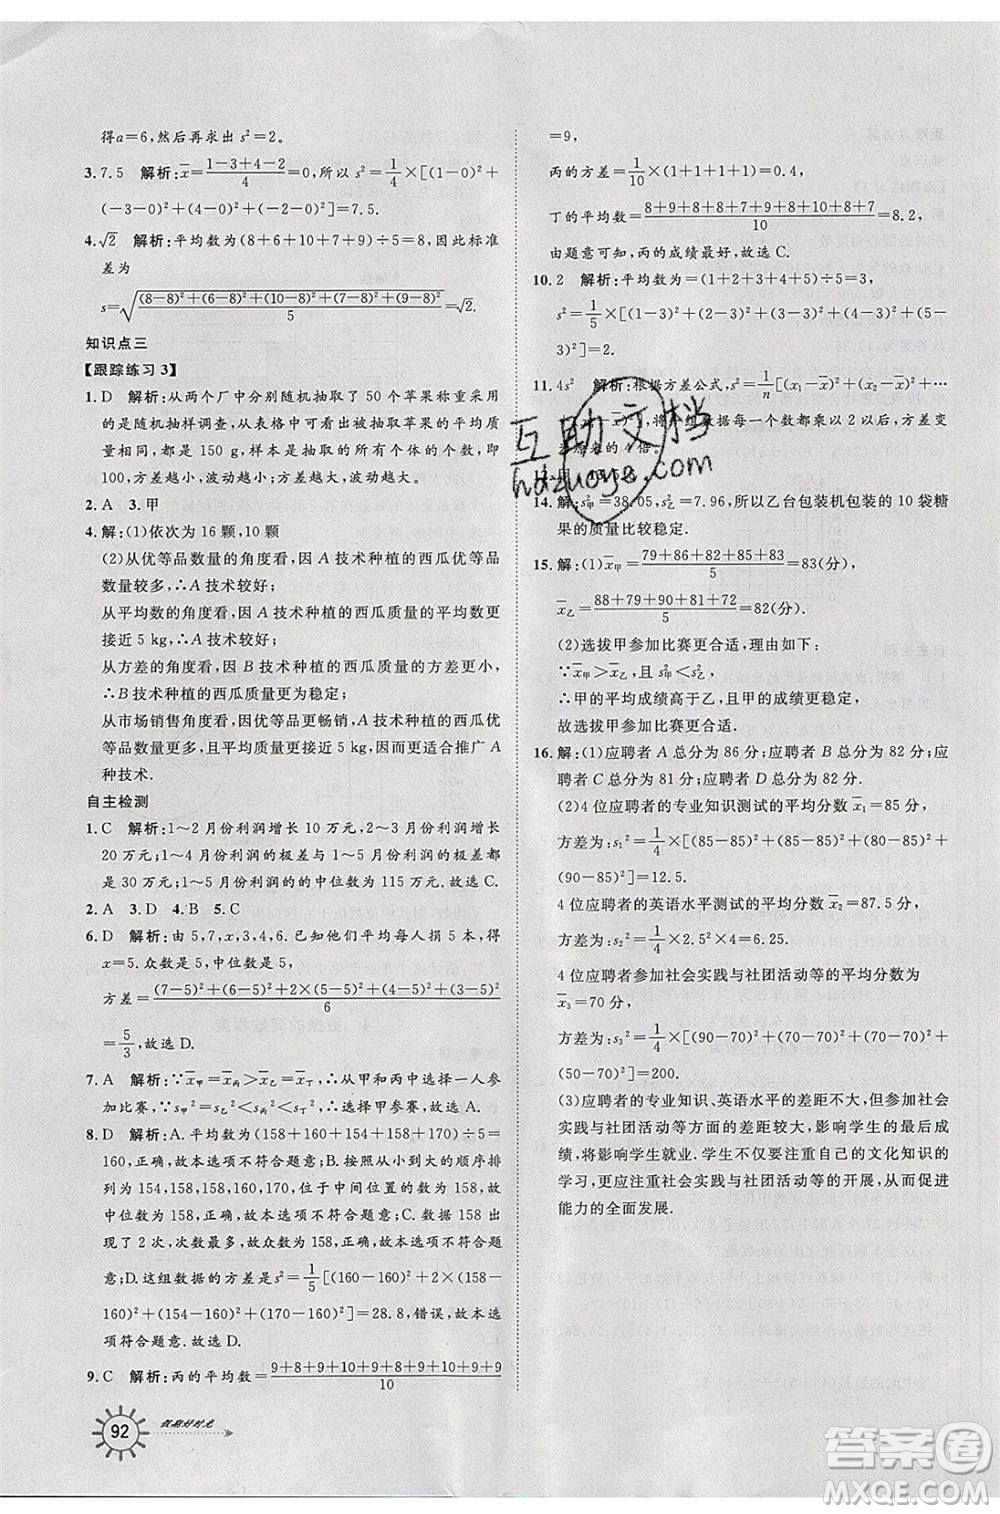 得a=6,然后再求出 s²=2.
3. 7.5 解析:x̄=(1-3+4-2)/4=0,所以 s²=1/4×[(1-0)²+
(-3-0)²+(4-0)²+(-2-0)²]=7.5.
4. √2 解析:平均数为(8+6+10+7+9)÷5=8,因此标准
差为
s=√(((8-8)²+(6-8)²+(10-8)²+(7-8)²+(9-8)²)/5)=√2.
知识点三
【跟踪练习3】
1. D 解析:从两个厂中分别随机抽取了 50 个苹果称重,采用
的随机抽样调查,从表格中可以看出样本的平均数相同,都是 150 g,样本是抽取的 50 个苹果的质量,样本容量是
100,方差越小,波动越小,方差越大,波动越大.
2. A 3. 甲
4. 解:(1)依次为 16 颗,10 颗
(2)从优等品数量的角度看,因 A 技术种植的西瓜优等品
数量较多,∴A 技术较好;
从平均数的角度看,因 A 技术种植的西瓜质量的平均数更
接近 5 kg,∴A 技术较好;
从方差的角度看,因 B 技术种植的西瓜质量的方差更小,
∴B 技术种植的西瓜质量更为稳定;
从市场销售角度看,因优等品更畅销,A 技术种植的西瓜优
等品数量更多,且平均质量更接近 5 kg,因而更适合推广 A
种技术.
自主检测
1. C 解析:1~2 月份利润增长 10 万元,2~3 月份利润增长
20 万元;1~4 月份利润的极差与 1~5 月份利润的极差都
是 30 万元;1~5 月份利润的的中位数为 115 万元.故选 C.
2. A 3. D 4. B 5. C
6. D 解析:由 5,7,x,3,4,6. 已知他们平均每人捐 5 本,得
x=5. 众数是 5,中位数是 5,
方差=((7-5)²+(6-5)²+2×(5-5)²+(4-5)²+(3-5)²)/6
=5/3,故选 D.
7. A 解析:∵x̄甲=x̄丙>x̄乙=x̄丁,∴从甲和丙中选择一人参
加比赛,∵s²甲=s²乙<s²丙<s²丁,∴选择甲参赛,故选 A.
8. D 解析:A. 平均数为(158+160+154+158+170)÷5=
160,正确,故本选项不符合题意;B. 按照从小到大的顺序排
列为 154,158,158,160,170,位于中间位置的数为 158,
故中位数为 158,正确,故本选项不符合题意;C. 数据 158
出现了 2 次,次数最多,故众数为 158,正确,故本选项不符合题
意;D. 这组数据的方差是 s²=1/5[(160-160)²+2×(158-
160)²+(154-160)²+(170-160)²]=28.8,错误,故本选
项符合题意.故选 D.
9. C 解析:丙的平均数=(9+8+9+10+9+8+9+10+9+9)/10
=9,
丙的方差=1/10×(1+1+1+1)=0.4,
丁的平均数=(8+9+8+8+7+9+8+10+8+7)/10=8.2,
由题意可知,丙的成绩最好,故选 C.
10. 2 解析:平均数=(1+2+3+4+5)÷5=3,
s²=1/5×[(1-3)²+(2-3)²+(3-3)²+(4-3)²+(5-
3)²]=2.
11. 4s² 解析:根据方差公式,s²=1/n[(x₁-x̄)²+(x₂-x̄)²+…
14. 解:∵s²甲=38.05,s²乙=7.96,所以乙台包装机包装的 10 袋糖
果的质量比较稳定.
15. 解:(1)x̄甲=(79+86+82+85+83)/5=83(分),
x̄乙=(88+79+90+81+72)/5=82(分).
(2)选拔甲参加比赛更合适,理由如下:
∵x̄甲>x̄乙,且 s²甲<s²乙,
∴甲的平均成绩高于乙,且甲的成绩更稳定,
故选拔甲参加比赛更合适.
16. 解:(1)应聘者 A 总分为 86 分;应聘者 B 总分为 82 分;应
聘者 C 总分为 81 分;应聘者 D 总分为 82 分.
(2)4 位应聘者的专业知识测试的平均分数 x̄₁=85,
方差为:s₁²=1/4×[(85-85)²+(85-85)²+(80-85)²+
(90-85)²]=12.5.
4 位应聘者的英语水平测试的平均分数 x̄₂=87.5,
方差为:s₂²=1/4×2.5²×4=6.25.
4 位应聘者参加社会实践与社团活动等的平均分数为
x̄₃=70 分,
方差为:s₃²=1/4×[(90-70)²+(70-70)²+(70-70)²+
(50-70)²]=200.
(3)应聘者的专业知识、英语水平的差距不大,但参加社会
实践与社团活动等方面的差距较大,影响学生的最后成
绩,影响学生就业.学生不仅要注重自己的文化知识的
学习,更应注重社会实践与社团活动等的开展,从而促进
能力的全面发展.
92 假期好时光
互助文档
hdzuoye.com
答案圈
MXQE.COM